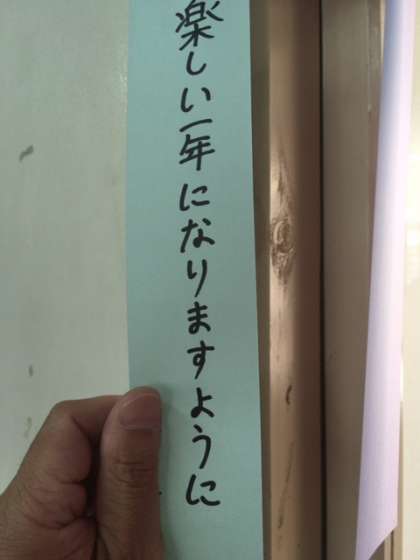 楽しい一年になりますように